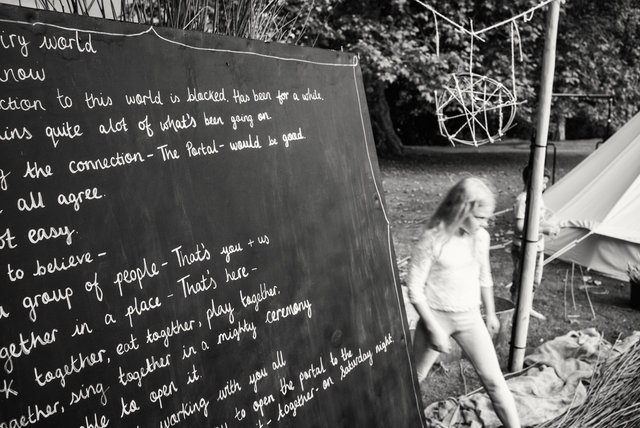 iry world
now
ction to this world is blocked. Has been for a while.
ins quite alot of what's been going on.
g the connection - The Portal - would be good.
all agree.
t easy.
to believe -
a group of people - That's you + us
gether in a place - That's here -
k together, eat together, play together.
ogether, sing together in a mighty ceremony
ble to open it.
working with you all
to open the portal to the
t - together - on Saturday night.